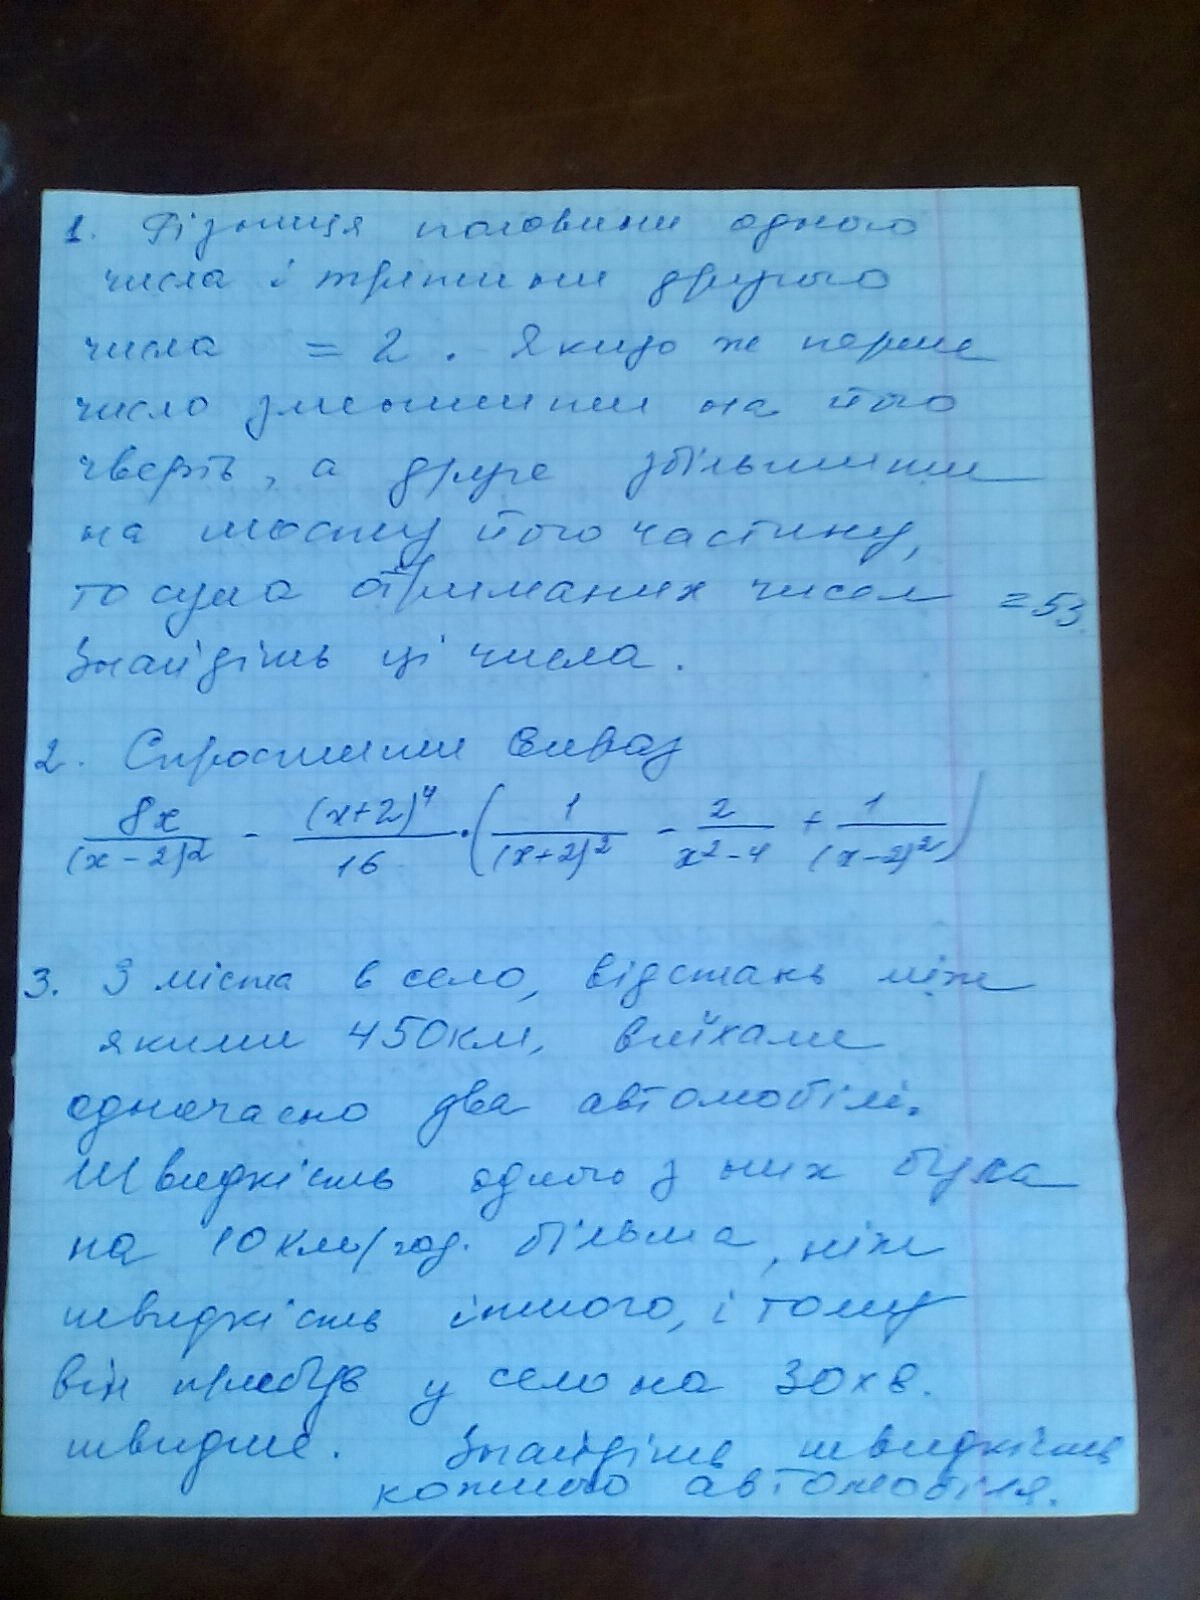 1. Різниця половини одного
числа і третини другого
числа = 2. Якщо ж перше
число зменшити на його
чверть, а друге збільшити
на шосту його частину,
то сума отриманих чисел = 53.
Знайдіть ці числа.
2. Спростити вираз
8x/(x-2)² - (x+2)⁴/16 · (1/(x+2)² - 2/(x²-4) + 1/(x-2)²)
3. З міста в село, відстань між
якими 450км, виїхали
одночасно два автомобілі.
Швидкість одного з них була
на 10км/год. більша, ніж
швидкість іншого, і тому
він прибув у село на 30хв.
швидше. Знайдіть швидкість
кожного автомобіля.